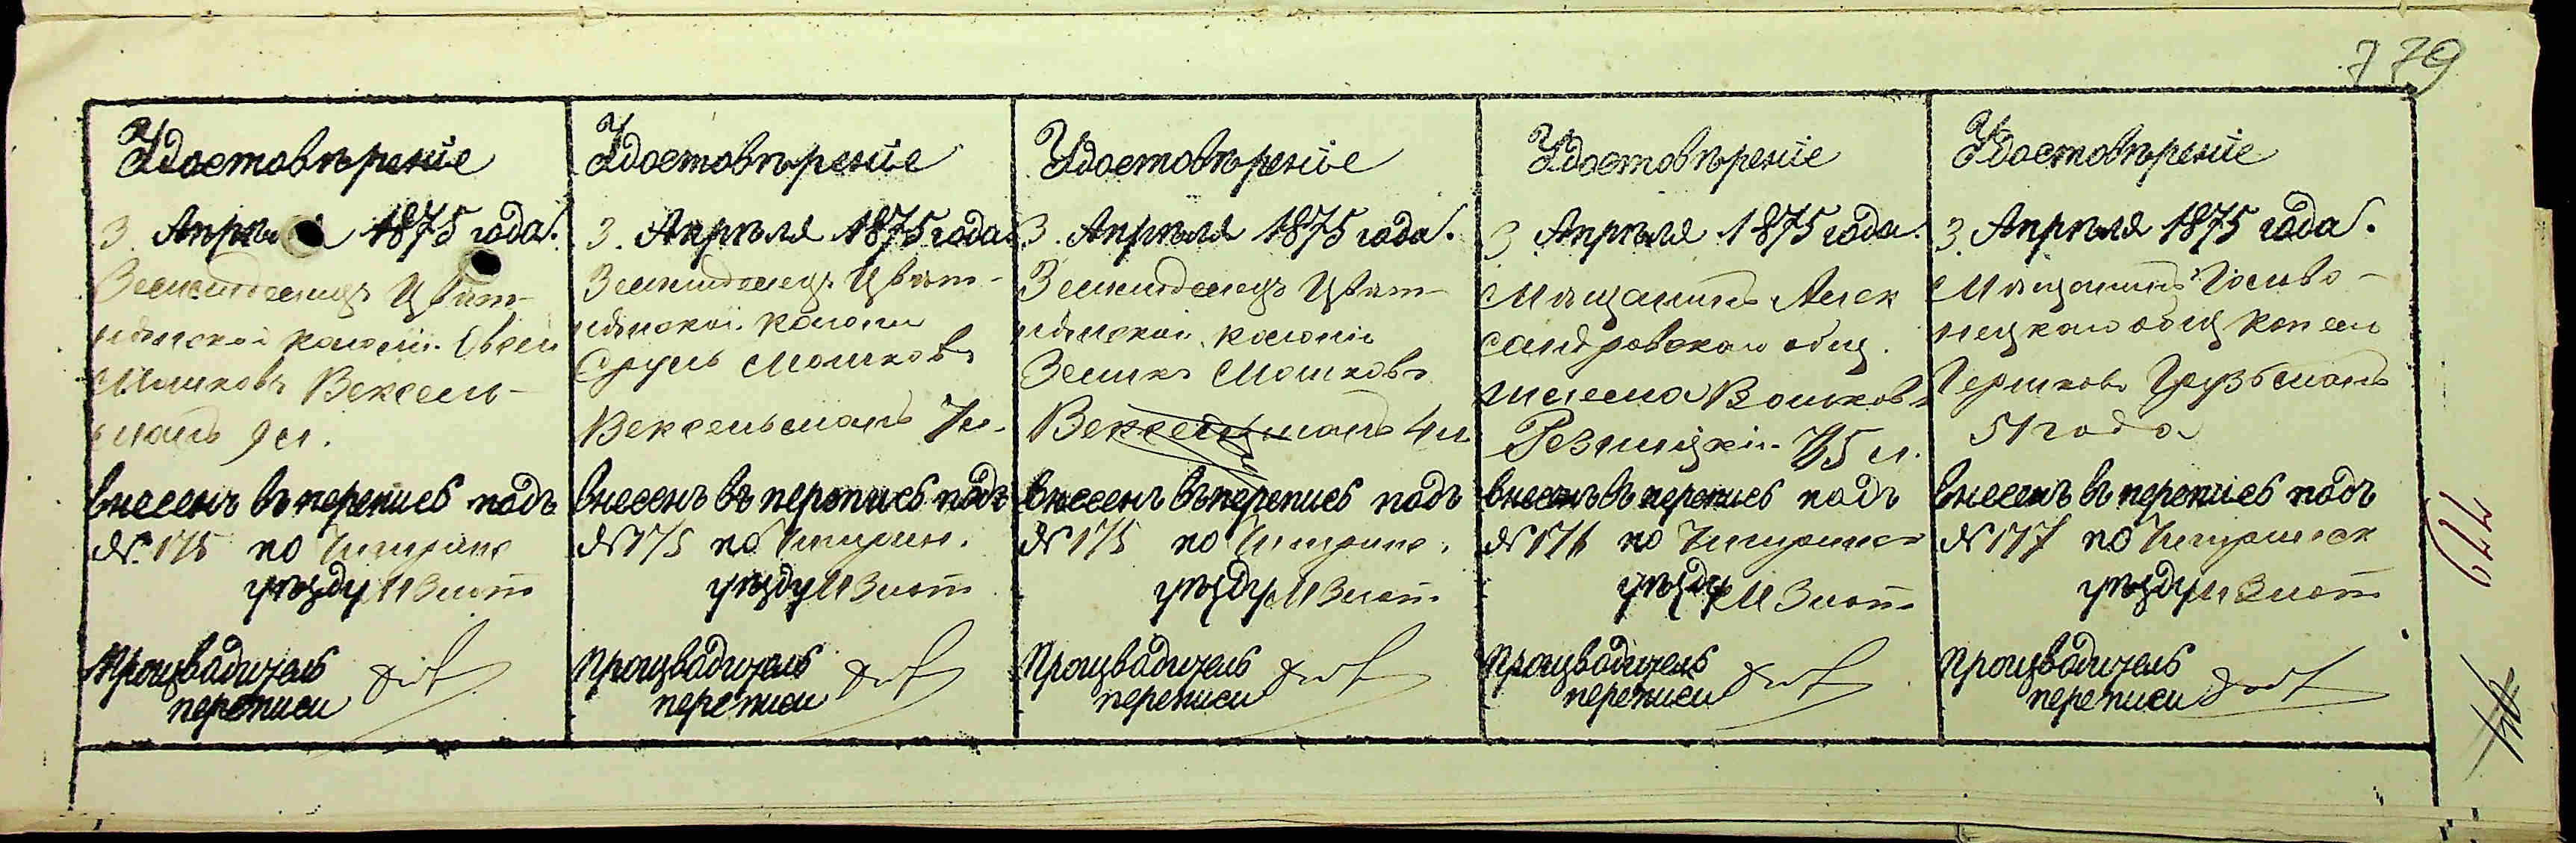 779
Удостовѣреніе
3. Апрѣля 1875 года.
Земледелецъ
колоніи Овсей
Мошковъ Вексель-
манъ 9 л.
внесенъ въ перепись подъ
№ 175 по Чигрин
уѣзду М Злот
Производитель
переписи
Удостовѣреніе
3. Апрѣля 1875 года
Земледелецъ
колоніи
Сруль Мошковъ
Вексельманъ 7 л.
внесенъ въ перепись подъ
№ 175 по Чигрин.
уѣзду М Злот
Производитель
переписи
Удостовѣреніе
3. Апрѣля 1875 года.
Земледелецъ
колоніи
Зеликъ Мошковъ
Вексельманъ 4 л
внесенъ въ перепись подъ
№ 175 по Чигрин.
уѣзду М Злот
Производитель
переписи
Удостовѣреніе
3 Апрѣля 1875 года.
Мѣщанинъ Алек
сандровскаго общ.
Шлема Волковъ
Резницкій 75 л.
внесенъ въ перепись подъ
№ 176 по Чигринск
уѣзду М Злот
Производитель
переписи
Удостовѣреніе
3. Апрѣля 1875 года.
Мѣщанинъ
общ
Гершковъ Грузьманъ
51 года
внесенъ въ перепись подъ
№ 177 по Чигринск
уѣзду М Злот
Производитель
переписи
779